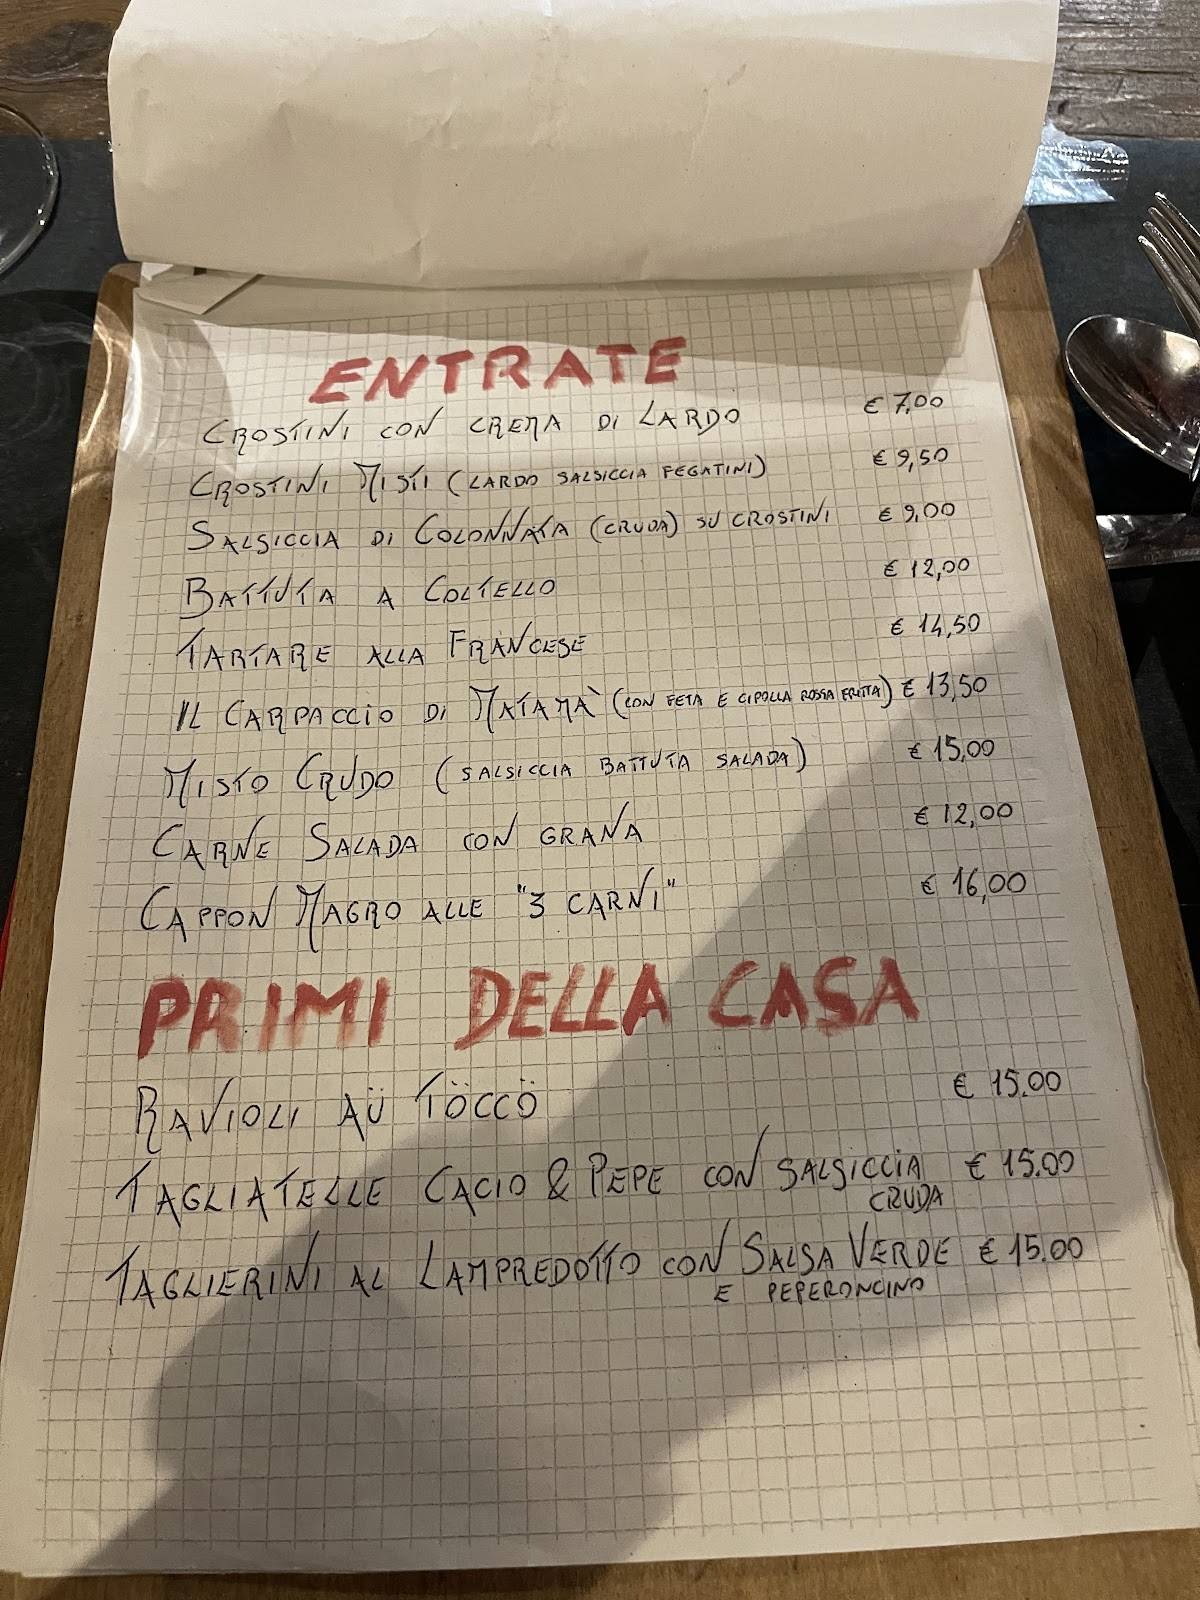 ENTRATE
CROSTINI CON CREMA DI LARDO € 7,00
CROSTINI MISTI (LARDO SALSICCIA FEGATINI) € 9,50
SALSICCIA DI COLONNATA (CRUDA) SU CROSTINI € 9,00
BATTUTA A COLTELLO € 12,00
TARTARE ALLA FRANCESE € 14,50
IL CARPACCIO DI MATAMÀ (CON FETA E CIPOLLA ROSSA FRITTA) € 13,50
MISTO CRUDO (SALSICCIA BATTUTA SALADA) € 15,00
CARNE SALADA CON GRANA € 12,00
CAPPON MAGRO ALLE "3 CARNI" € 16,00
PRIMI DELLA CASA
RAVIOLI AÜ TÖCCÖ € 15.00
TAGLIATELLE CACIO & PEPE CON SALSICCIA € 15.00
CRUDA
TAGLIERINI AL LAMPREDOTTO CON SALSA VERDE € 15.00
E PEPERONCINO